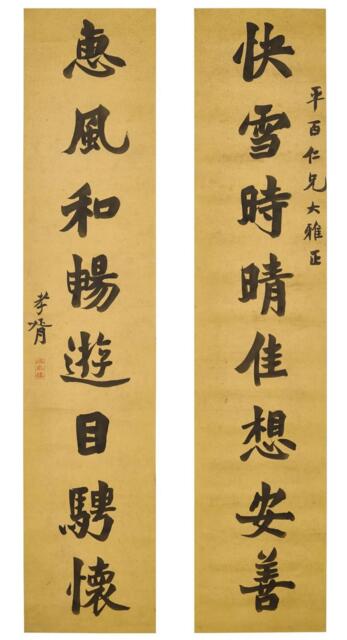 快雪時晴佳想安善
平百仁兄大雅正
惠風和暢遊目騁懷
孝胥